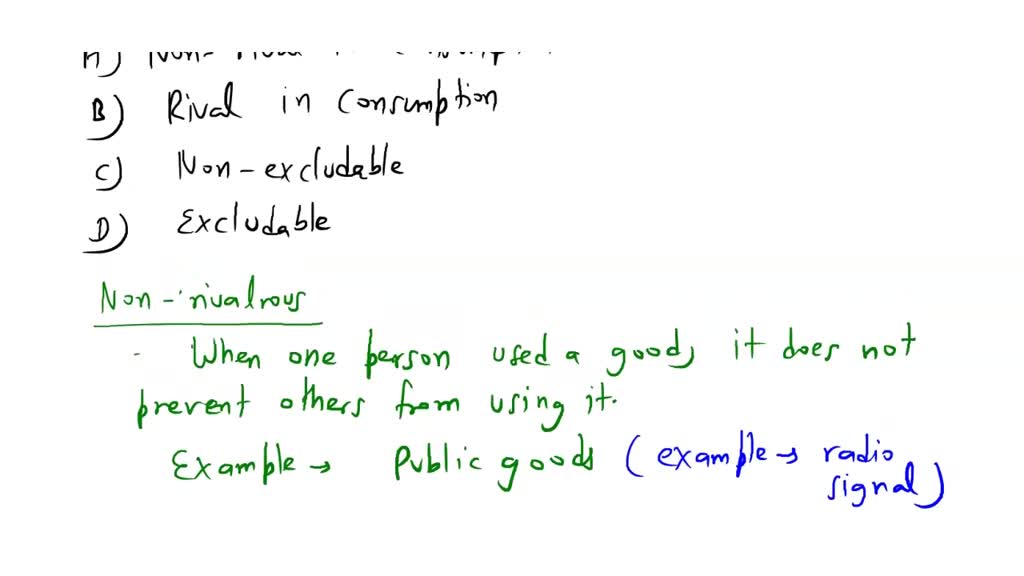 B) Rival in Consumption
C) Non-excludable
D) Excludable
Non-rivalrous
When one person used a good, it does not
prevent others from using it.
Example → Public goods (example → radio
signal)